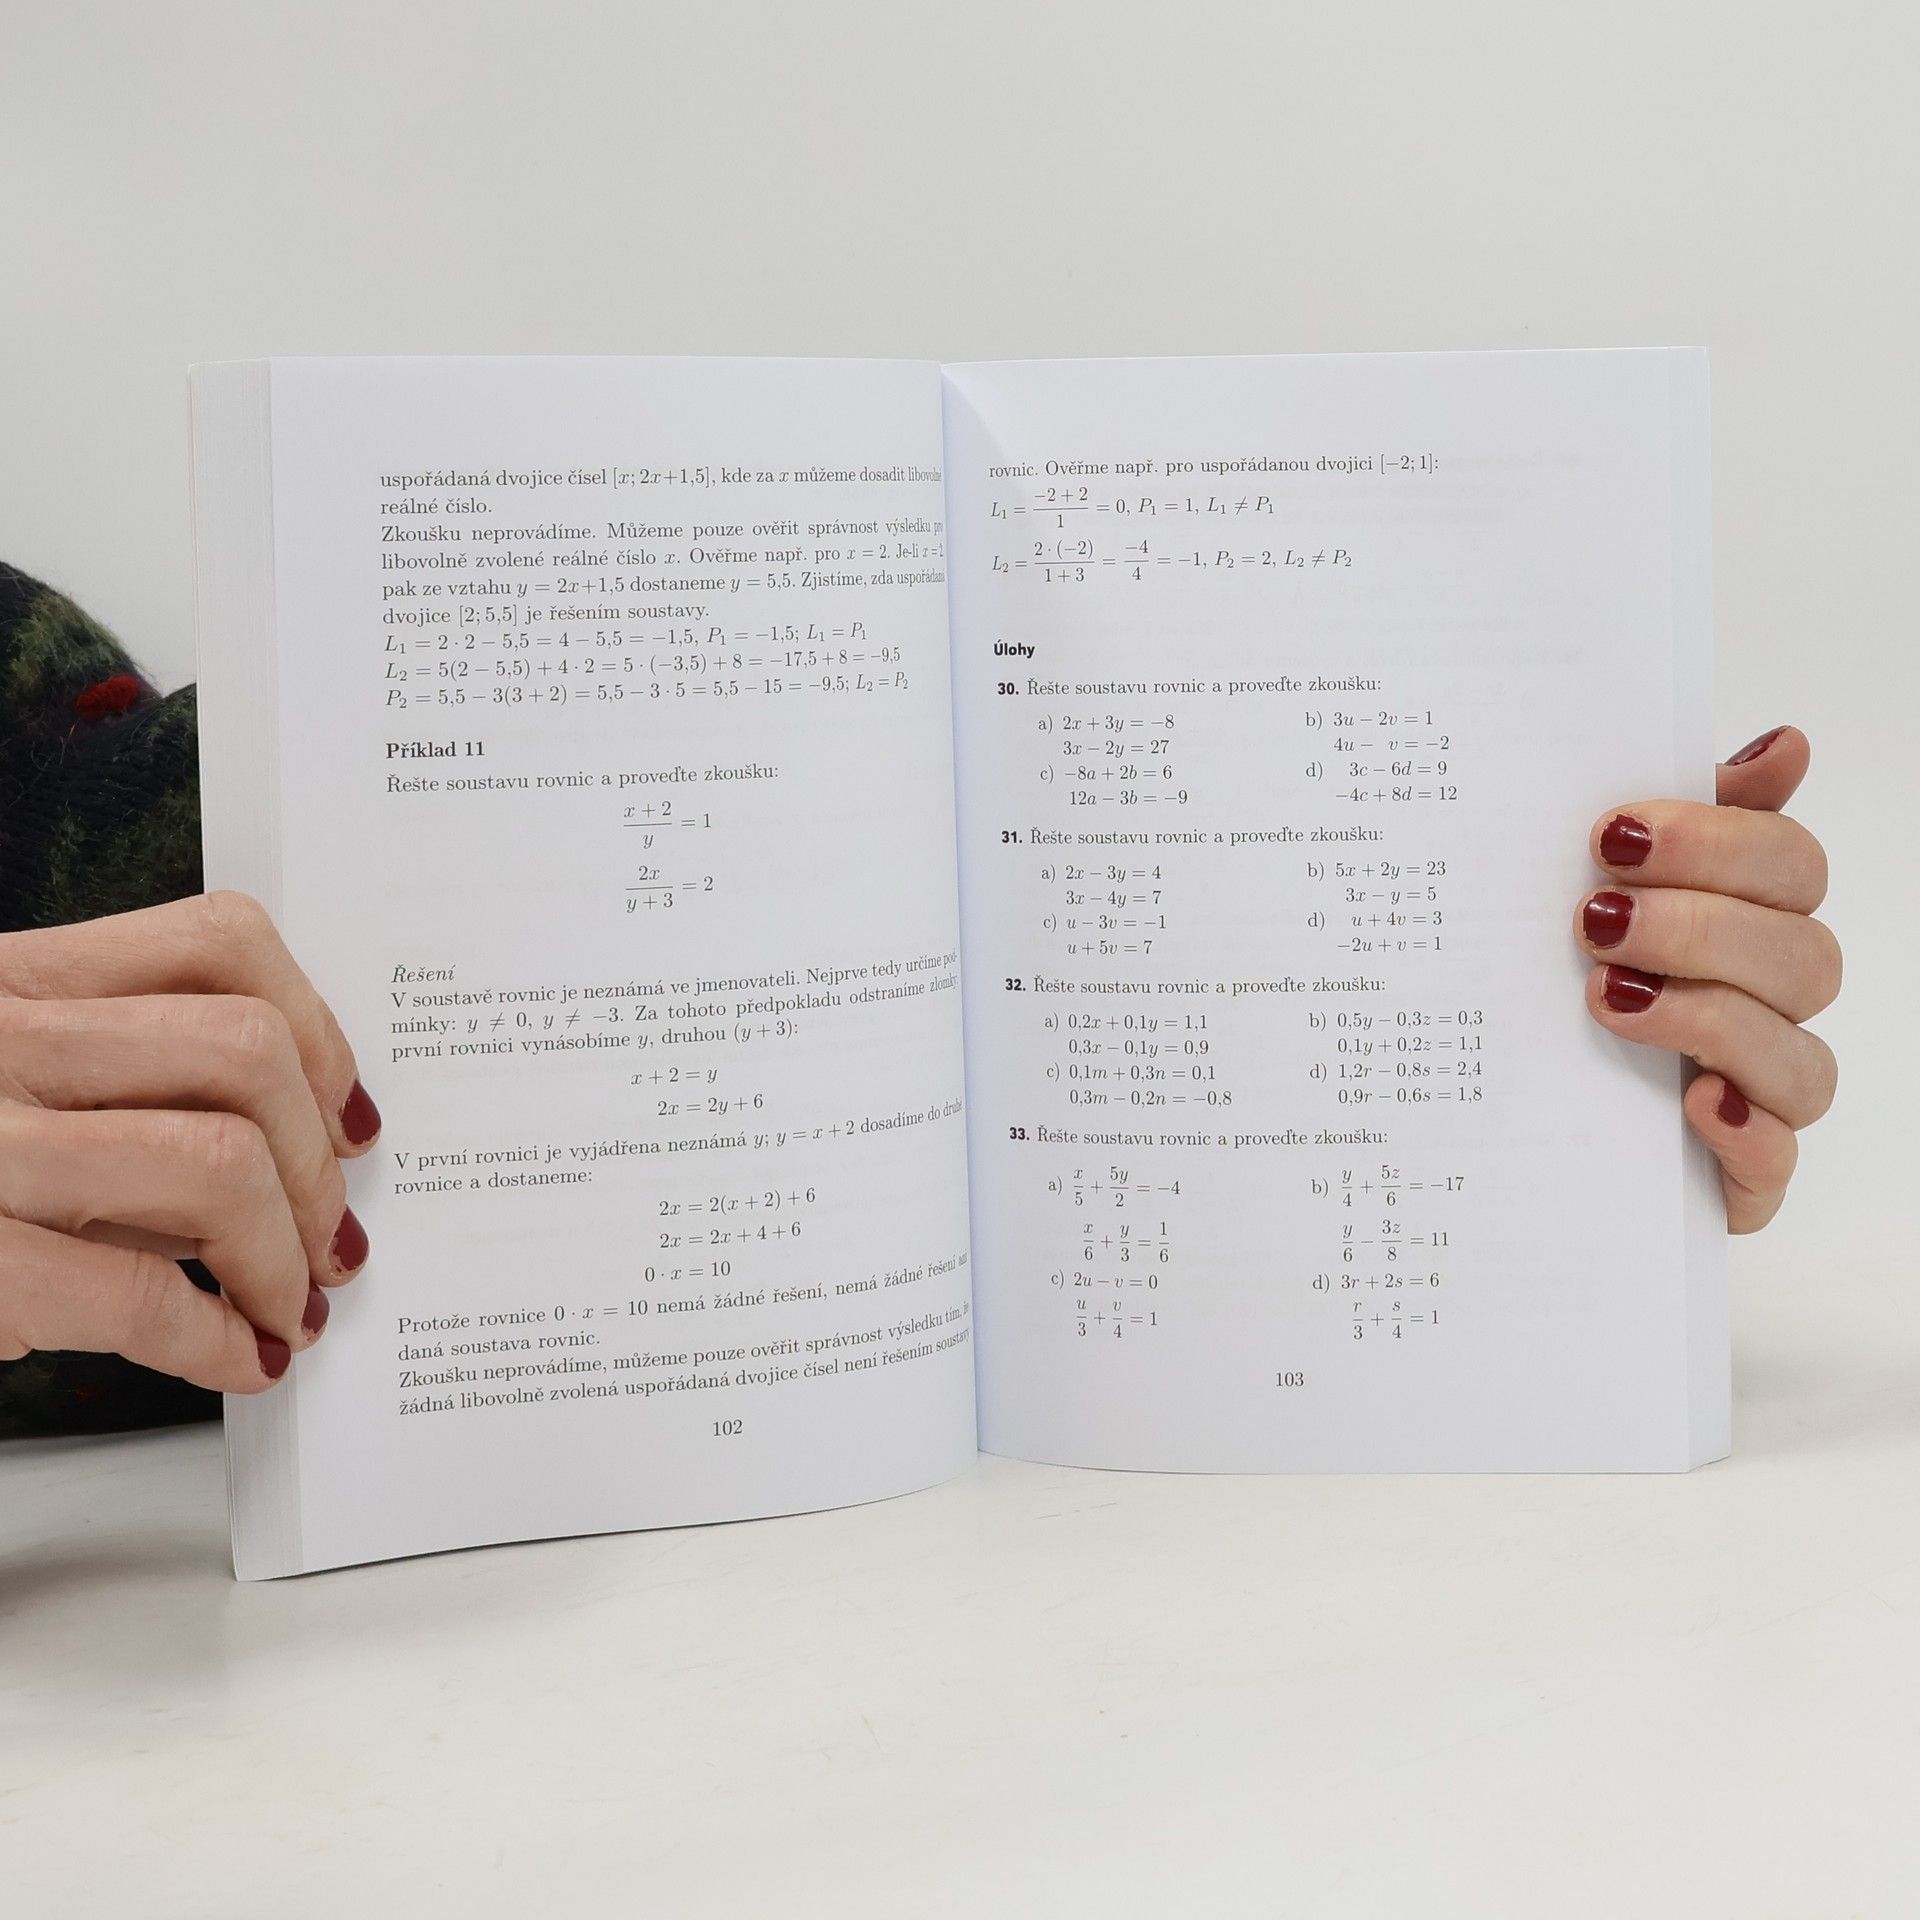 uspořádaná dvojice čísel [x; 2x+1,5], kde za x můžeme dosadit libovolné
reálné číslo.
Zkoušku neprovádíme. Můžeme pouze ověřit správnost výsledku pro
libovolně zvolené reálné číslo x. Ověřme např. pro x = 2. Je-li x = 2
pak ze vztahu y = 2x+1,5 dostaneme y = 5,5. Zjistíme, zda uspořádaná
dvojice [2; 5,5] je řešením soustavy.
L₁ = 2 · 2 − 5,5 = 4 − 5,5 = −1,5, P₁ = −1,5; L₁ = P₁
L₂ = 5(2 − 5,5) + 4 · 2 = 5 · (−3,5) + 8 = −17,5 + 8 = −9,5
P₂ = 5,5 − 3(3 + 2) = 5,5 − 3 · 5 = 5,5 − 15 = −9,5; L₂ = P₂
Příklad 11
Řešte soustavu rovnic a proveďte zkoušku:
(x + 2)/y = 1
2x/(y + 3) = 2
Řešení
V soustavě rovnic je neznámá ve jmenovateli. Nejprve tedy určíme pod-
mínky: y ≠ 0, y ≠ −3. Za tohoto předpokladu odstraníme zlomky:
první rovnici vynásobíme y, druhou (y + 3):
x + 2 = y
2x = 2y + 6
V první rovnici je vyjádřena neznámá y; y = x + 2 dosadíme do druhé
rovnice a dostaneme:
2x = 2(x + 2) + 6
2x = 2x + 4 + 6
0 · x = 10
Protože rovnice 0 · x = 10 nemá žádné řešení, nemá žádné řešení
daná soustava rovnic.
Zkoušku neprovádíme, můžeme pouze ověřit správnost výsledku tím, že
žádná libovolně zvolená uspořádaná dvojice čísel není řešením soustavy
102
rovnic. Ověřme např. pro uspořádanou dvojici [−2; 1]:
L₁ = (−2 + 2)/1 = 0, P₁ = 1, L₁ ≠ P₁
L₂ = (2 · (−2))/(1 + 3) = −4/4 = −1, P₂ = 2, L₂ ≠ P₂
Úlohy
30. Řešte soustavu rovnic a proveďte zkoušku:
a) 2x + 3y = −8 b) 3u − 2v = 1
3x − 2y = 27 4u − v = −2
c) −8a + 2b = 6 d) 3c − 6d = 9
12a − 3b = −9 −4c + 8d = 12
31. Řešte soustavu rovnic a proveďte zkoušku:
a) 2x − 3y = 4 b) 5x + 2y = 23
3x − 4y = 7 3x − y = 5
c) u − 3v = −1 d) u + 4v = 3
u + 5v = 7 −2u + v = 1
32. Řešte soustavu rovnic a proveďte zkoušku:
a) 0,2x + 0,1y = 1,1 b) 0,5y − 0,3z = 0,3
0,3x − 0,1y = 0,9 0,1y + 0,2z = 1,1
c) 0,1m + 0,3n = 0,1 d) 1,2r − 0,8s = 2,4
0,3m − 0,2n = −0,8 0,9r − 0,6s = 1,8
33. Řešte soustavu rovnic a proveďte zkoušku:
a) x/5 + 5y/2 = −4 b) y/4 + 5z/6 = −17
x/6 + y/3 = 1/6 y/6 − 3z/8 = 11
c) 2u − v = 0 d) 3r + 2s = 6
u/3 + v/4 = 1 r/3 + s/4 = 1
103